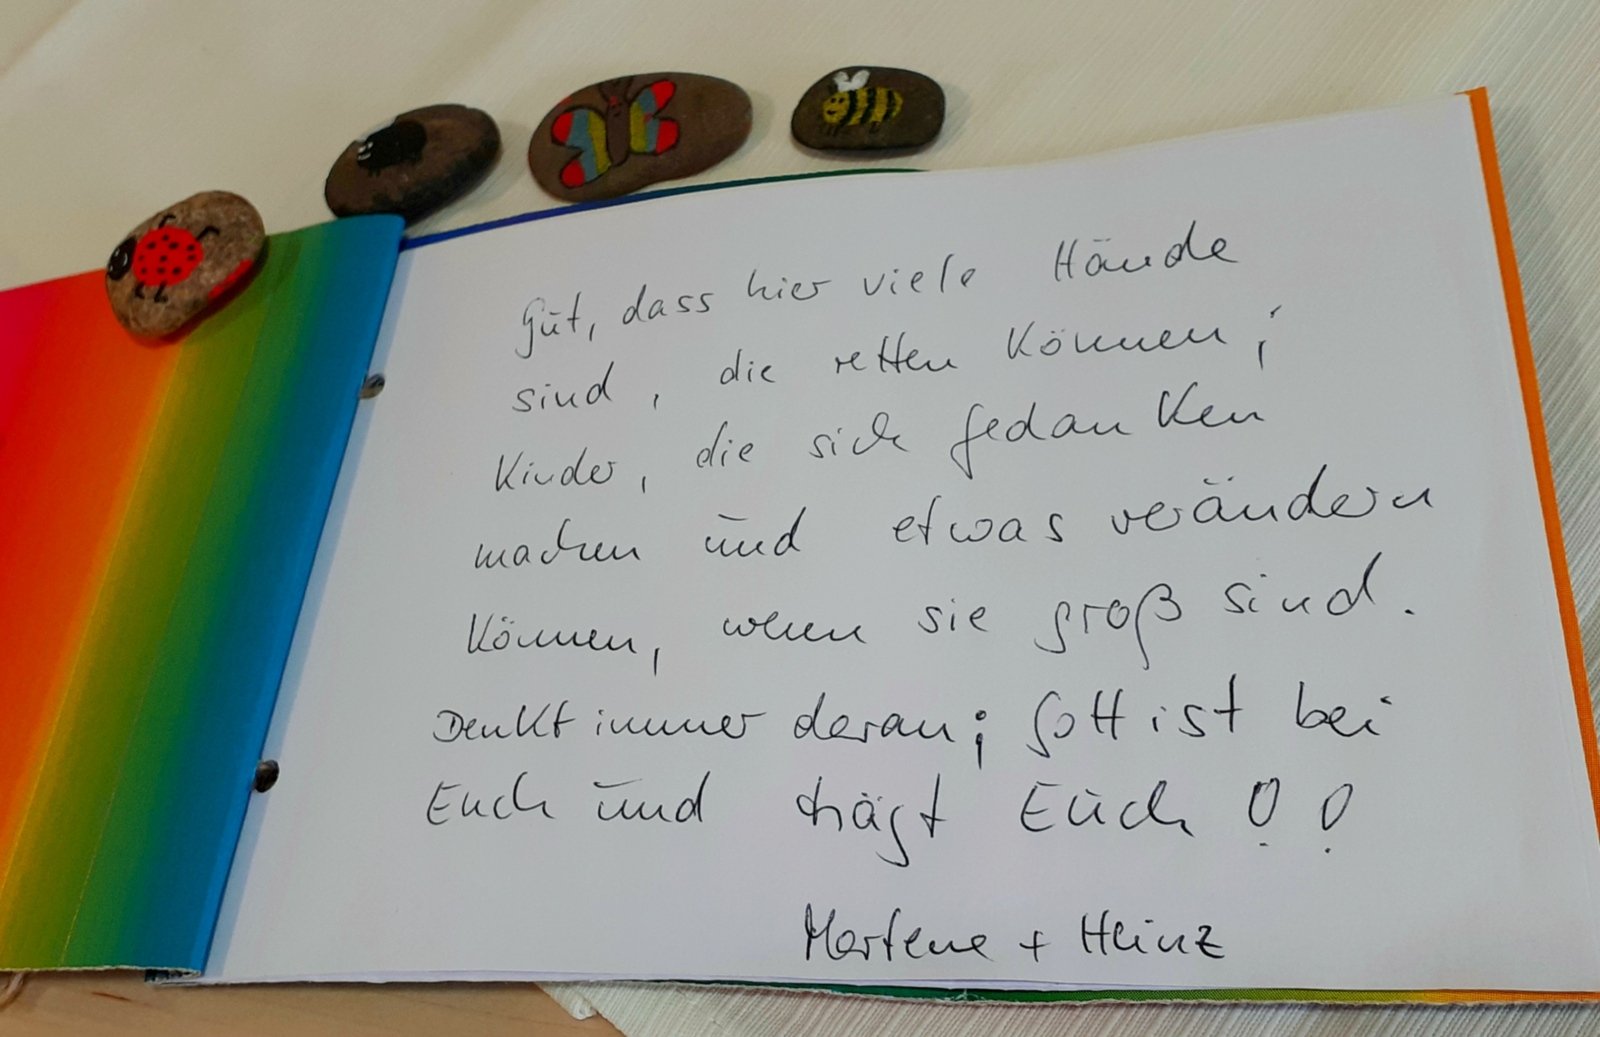 Gut, dass hier viele Hände
sind, die retten können;
Kinder, die sich Gedanken
machen und etwas verändern
können, wenn sie groß sind.
Denkt immer daran; Gott ist bei
Euch und trägt Euch !!
+ Heinz